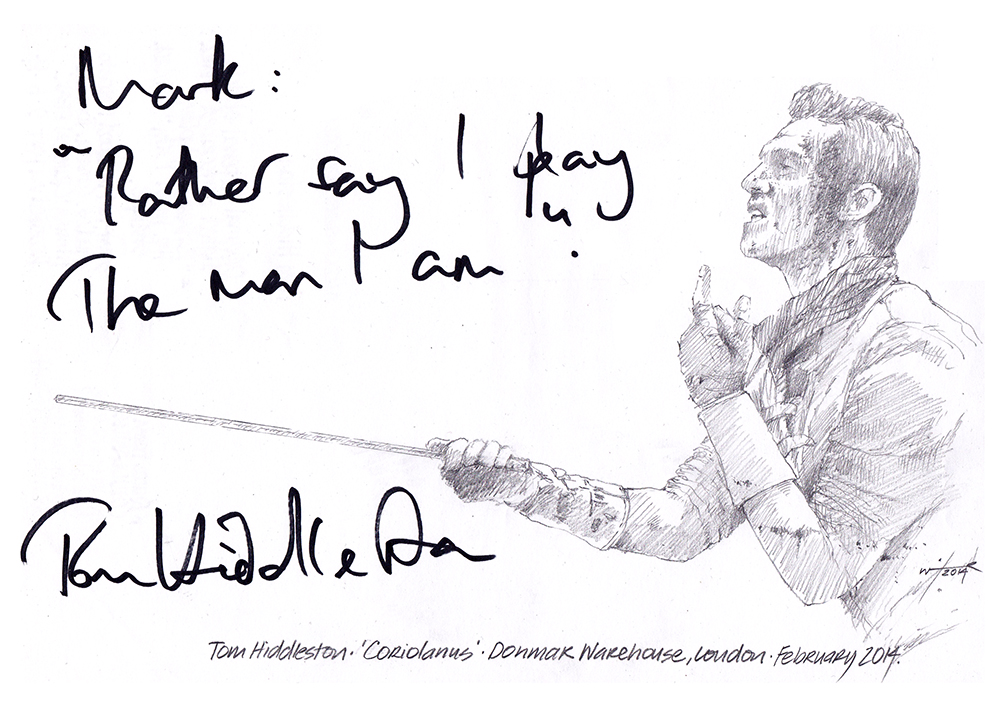 Mark:
"Rather say I play
The man I am"
Tom Hiddleston
2014
Tom Hiddleston · 'Coriolanus' · Donmar Warehouse, London · February 2014.